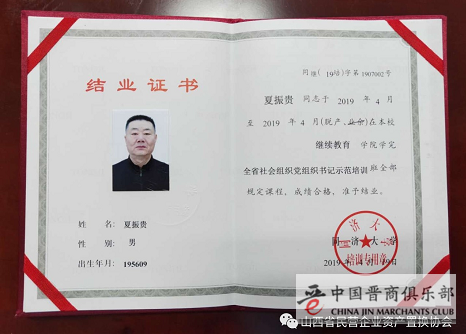 结业证书
姓 名 夏振贵
性 别: 男
出生年月: 195609
同继(19培)字第 1907002 号
夏振贵 同志于 2019 年 4 月
至 2019 年 4 月(脱产、业余)在本校
继续教育 学院学完
全省社会组织党组织书记示范培训 班全部
规定课程, 成绩合格, 准予结业。
同 济 大 学
培训专用章
2019 年 4 月 19日
中国晋商俱乐部
CHINA JIN MERCHANTS CLUB
山西省民营企业资产置换协会